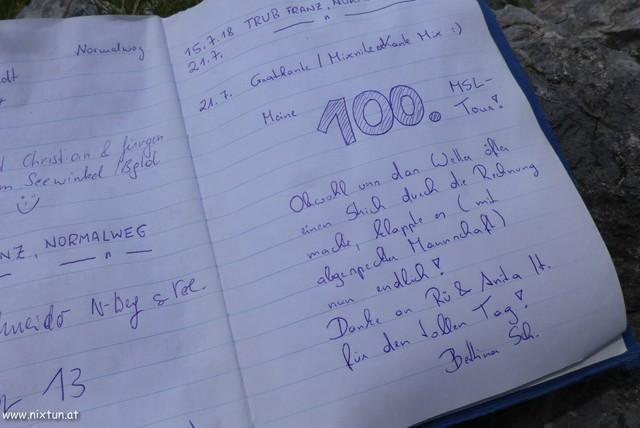 Normalweg
Christian & Jürgen
Seewinkel / Bgld
NZ, NORMALWEG
— n —
N-Weg
13
15.7.18 TRUB FRANZ,
21.7. — n —
21.7. Gratkante / Mix :)
Meine 100. MSL-
Tour!
Obwohl uns das Wetter öfter
einen Strich durch die Rechnung
machte, klappte es (mit
abgespeckter Mannschaft)
nun endlich!
Danke an Rü & Anita It.
für den tollen Tag!
Bettina Sch.
www.nixtun.at